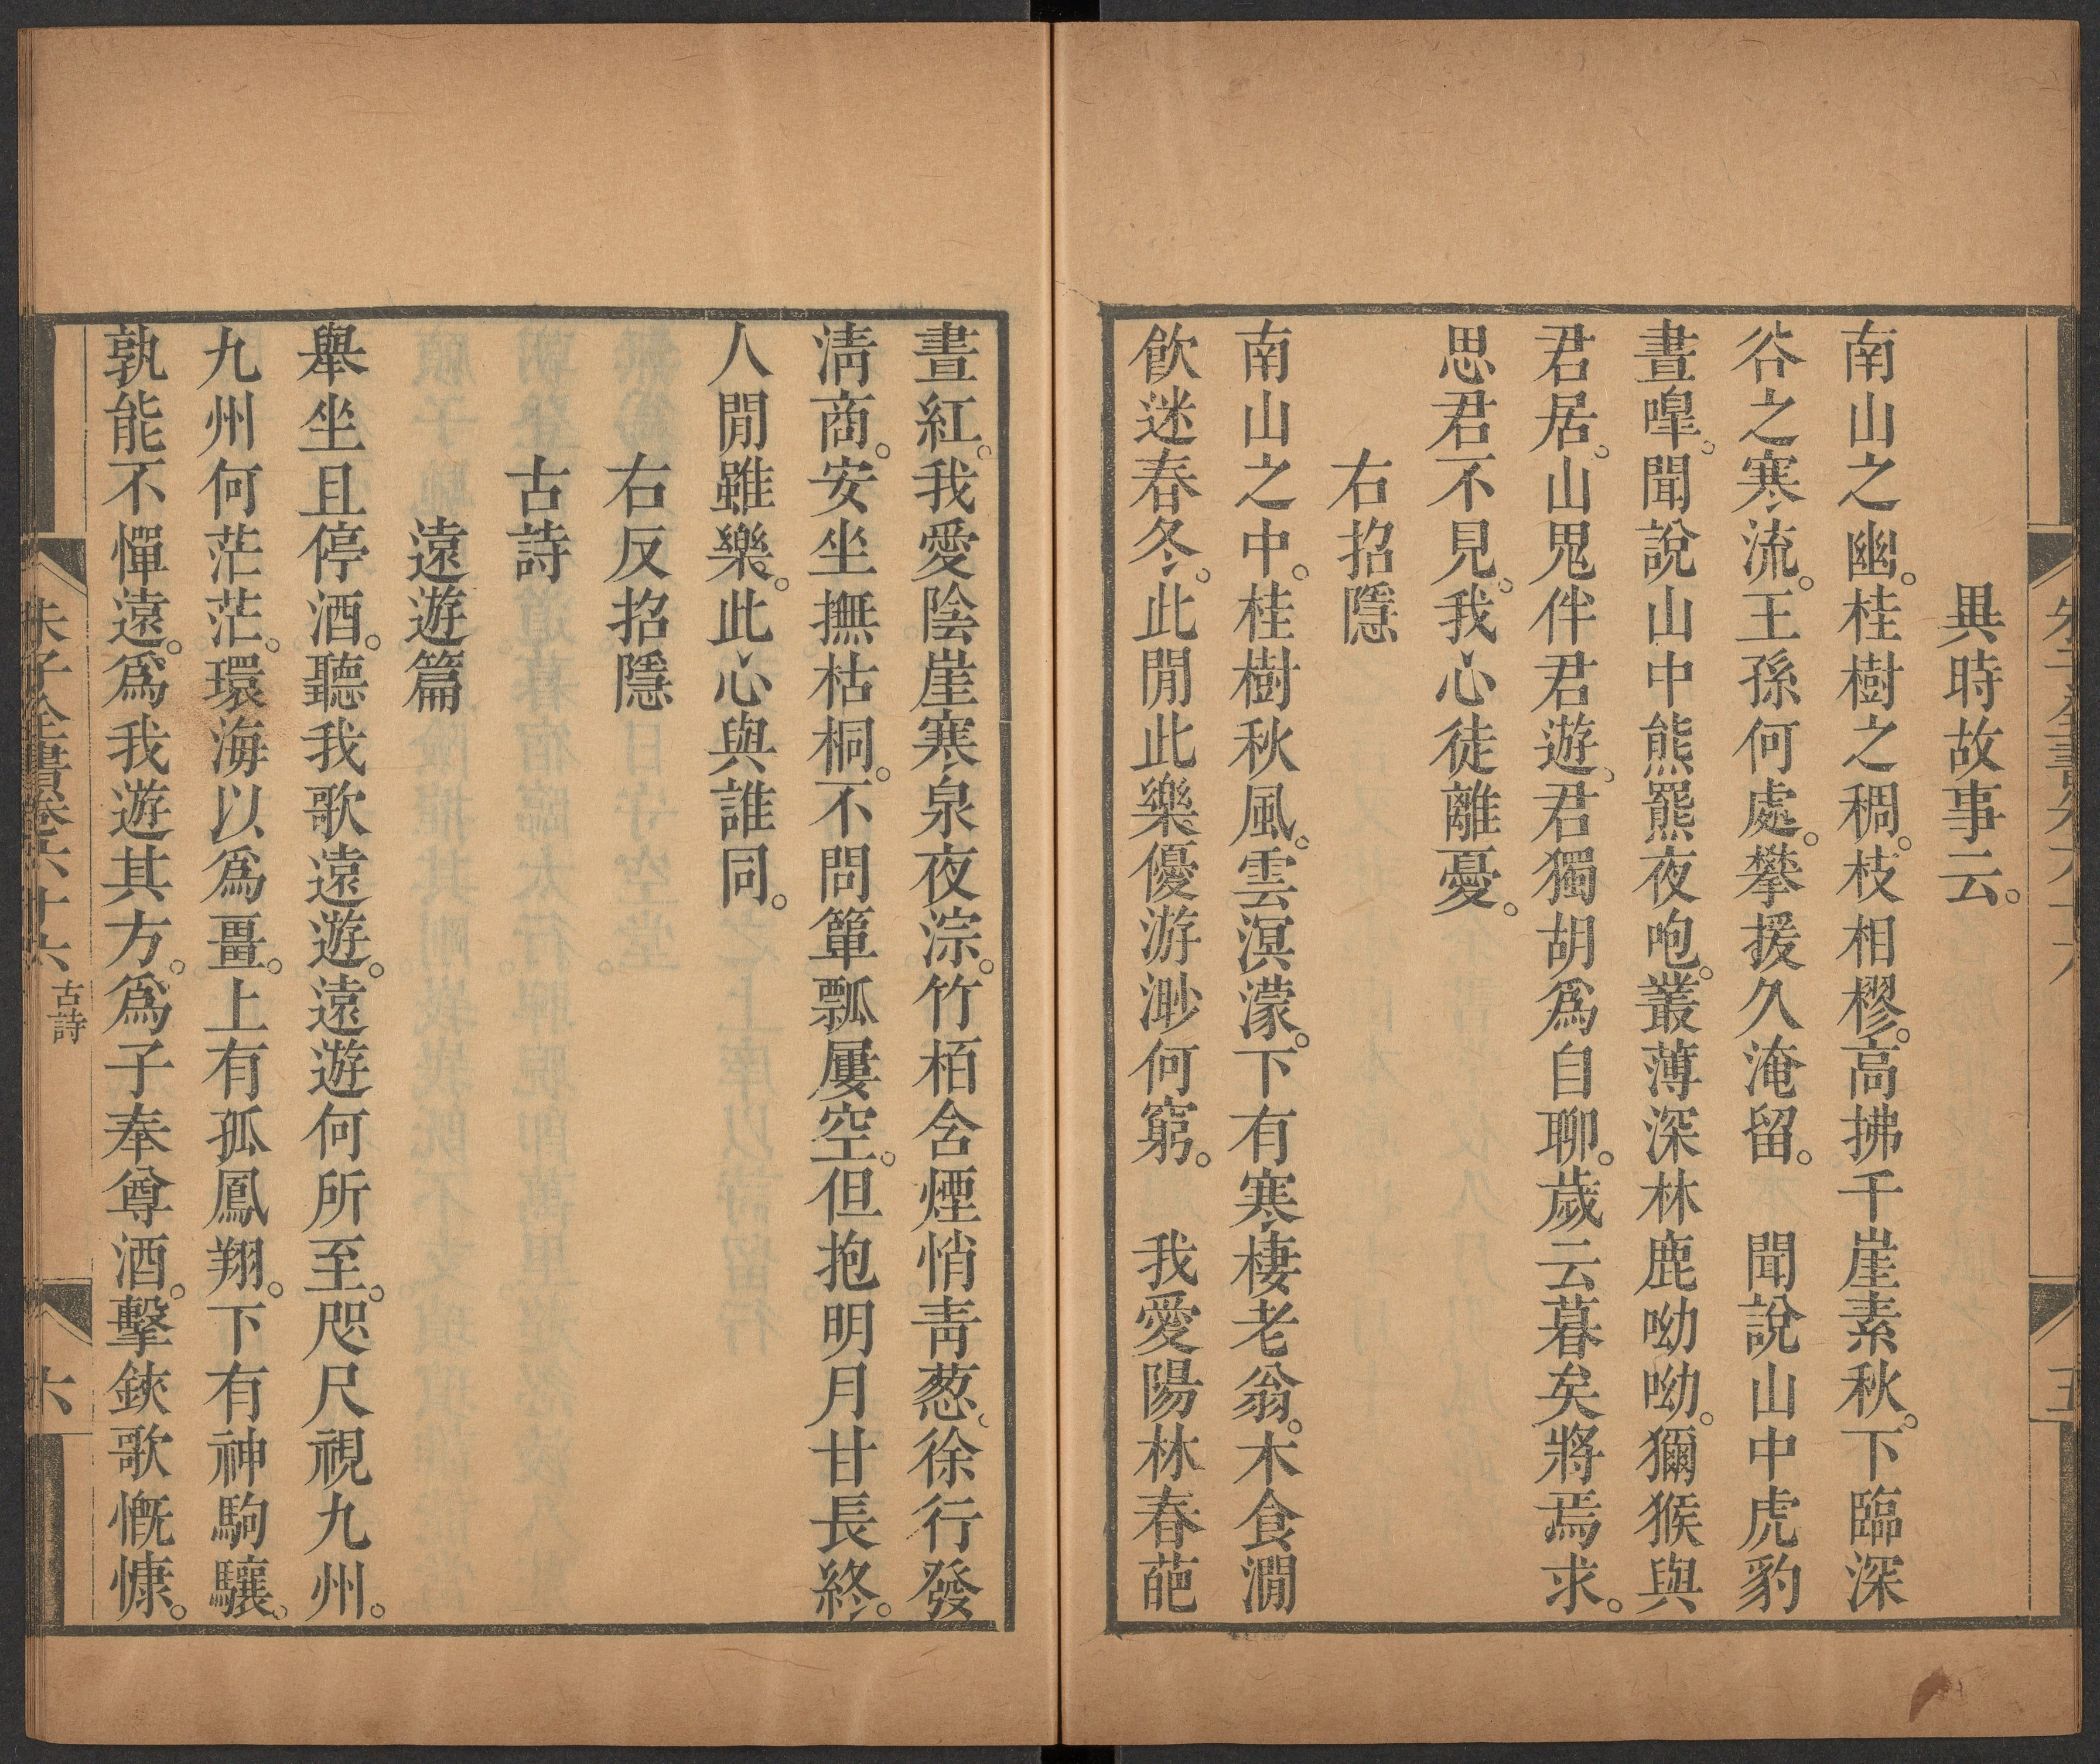 異時故事云。
南山之幽。桂樹之稠。枝相樛。高拂千崖素秋。下臨深
谷之寒流。王孫何處。攀援久淹留。　聞說山中虎豹
晝嘷。聞說山中熊羆夜咆。叢薄深林鹿呦呦。獮猴與
君居。山鬼伴君遊。君獨胡爲自聊。歲云暮矣將焉求。
思君不見。我心徒離憂。
右招隱
南山之中。桂樹秋風。雲溟濛。下有寒棲老翁。木食澗
飲迷春冬。此閒此樂優游渺何窮。　我愛陽林春葩
晝紅。我愛陰崖寒泉夜淙。竹栢含煙悄靑葱。徐行發
淸商。安坐撫枯桐。不問簞瓢屢空。但抱明月甘長終。
人閒雖樂。此心與誰同。
右反招隱
古詩
遠遊篇
舉坐且停酒。聽我歌遠遊。遠遊何所至。咫尺視九州。
九州何茫茫。環海以爲畺。上有孤鳳翔。下有神駒驤。
孰能不憚遠。爲我遊其方。爲子奉尊酒。擊鋏歌慨慷。
朱子全書卷六十六　古詩　六